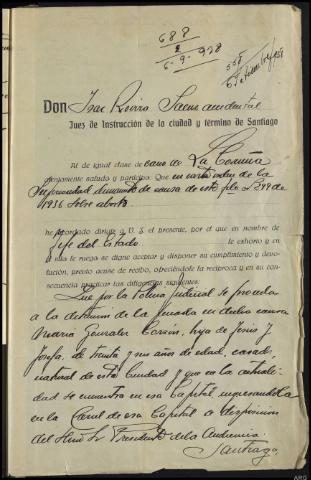 688
2
6-9-938
Don Isac Rovira Saenz accidental
Juez de Instrucción de la ciudad y término de Santiago
Al de igual clase de esa de La Coruña
atentamente saludo y participo: Que en carta orden de la
Superioridad dimanante de causa de este de
1936 sobre aborto
he acordado dirigir a V. S. el presente, por el que en nombre de
Jefe del Estado le exhorto y en
el mío le ruego se digne aceptar y disponer su cumplimiento y devo-
lución, previo acuse de recibo, ofreciéndole la recíproca y en su con-
secuencia practicar las diligencias siguientes:
Que por la Policia judicial se proceda
a la detencion de la penada en dicha causa
Maria Gonzalez hija de Jesús y
Josefa, de treinta y un años de edad, casada,
natural de esta Ciudad y que en la actuali-
dad se encuentra en esa Capital ingresandola
en la Carcel de esa Capital a disposicion
del Presidente de la Audiencia.
Santiago,